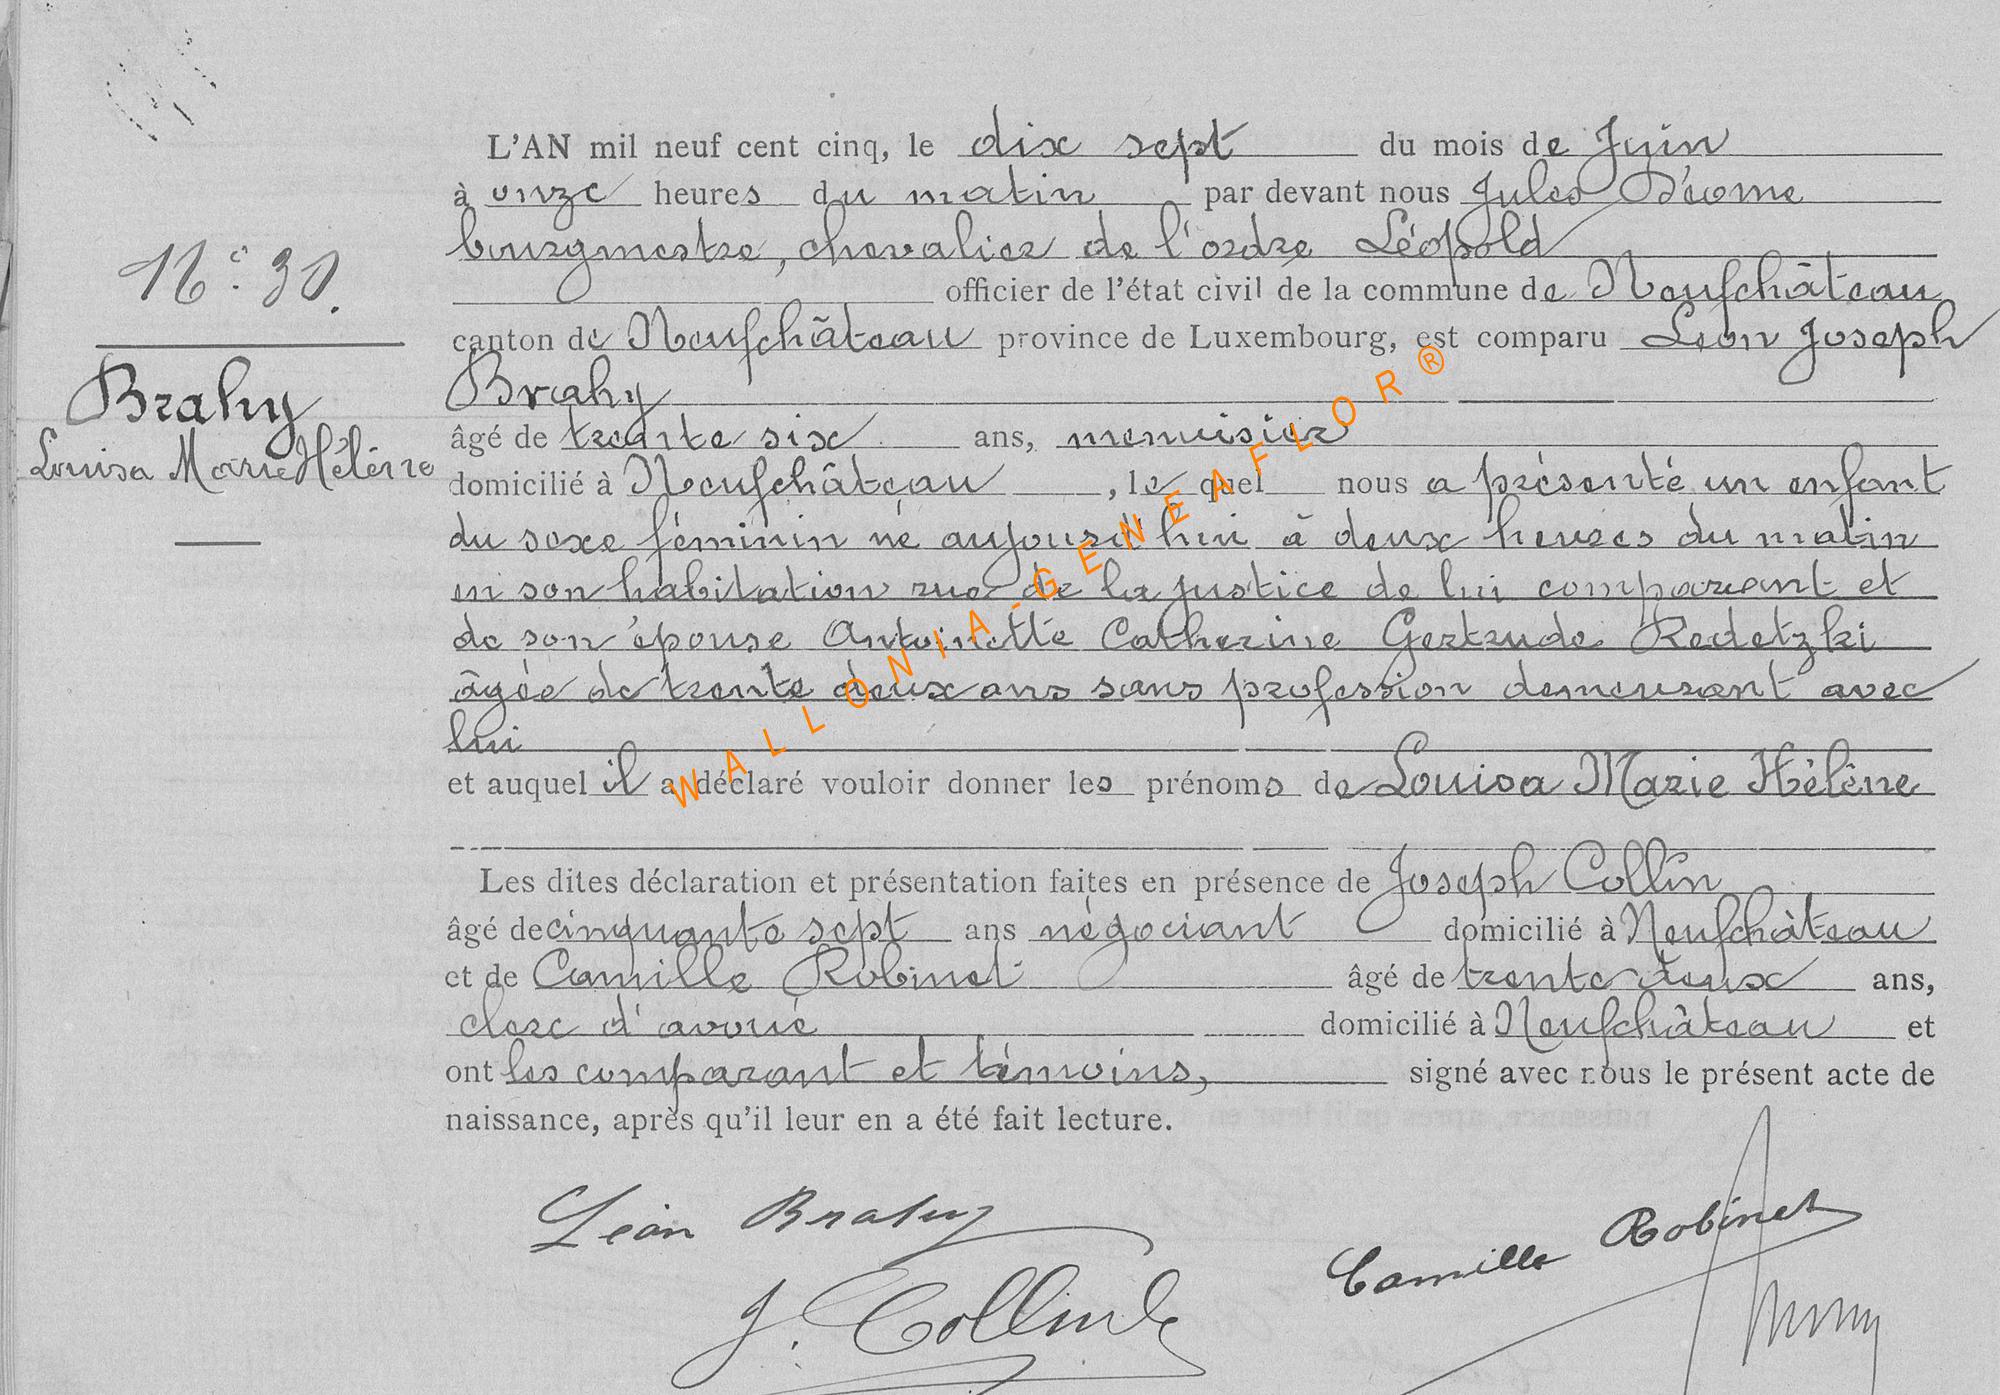 L'AN mil neuf cent cinq, le dix sept du mois de Juin
à onze heures du matin par devant nous Jules
bourgmestre, chevalier de l'ordre Léopold
officier de l'état civil de la commune de Neufchâteau
canton de Neufchâteau province de Luxembourg, est comparu Léon Joseph
Brahy
âgé de trente six ans, menuisier
domicilié à Neufchâteau, le quel nous a présenté un enfant
du sexe féminin né aujourd'hui à deux heures du matin
en son habitation rue de la justice de lui comparant et
de son épouse Antoinette Catherine Gertrude Redetzki
âgée de trente deux ans sans profession demeurant avec
lui
et auquel il a déclaré vouloir donner les prénoms de Louisa Marie Hélène
Les dites déclaration et présentation faites en présence de Joseph Collin
âgé de cinquante sept ans négociant domicilié à Neufchâteau
et de Camille Robinet âgé de trente deux ans,
clerc d'avoué domicilié à Neufchâteau et
ont les comparant et témoins, signé avec nous le présent acte de
naissance, après qu'il leur en a été fait lecture.
N° 30.
Brahy
Louisa Marie Hélène
Léon Brahy
J. Collin
Camille Robinet
WALLONIA-GENEAFLOR®